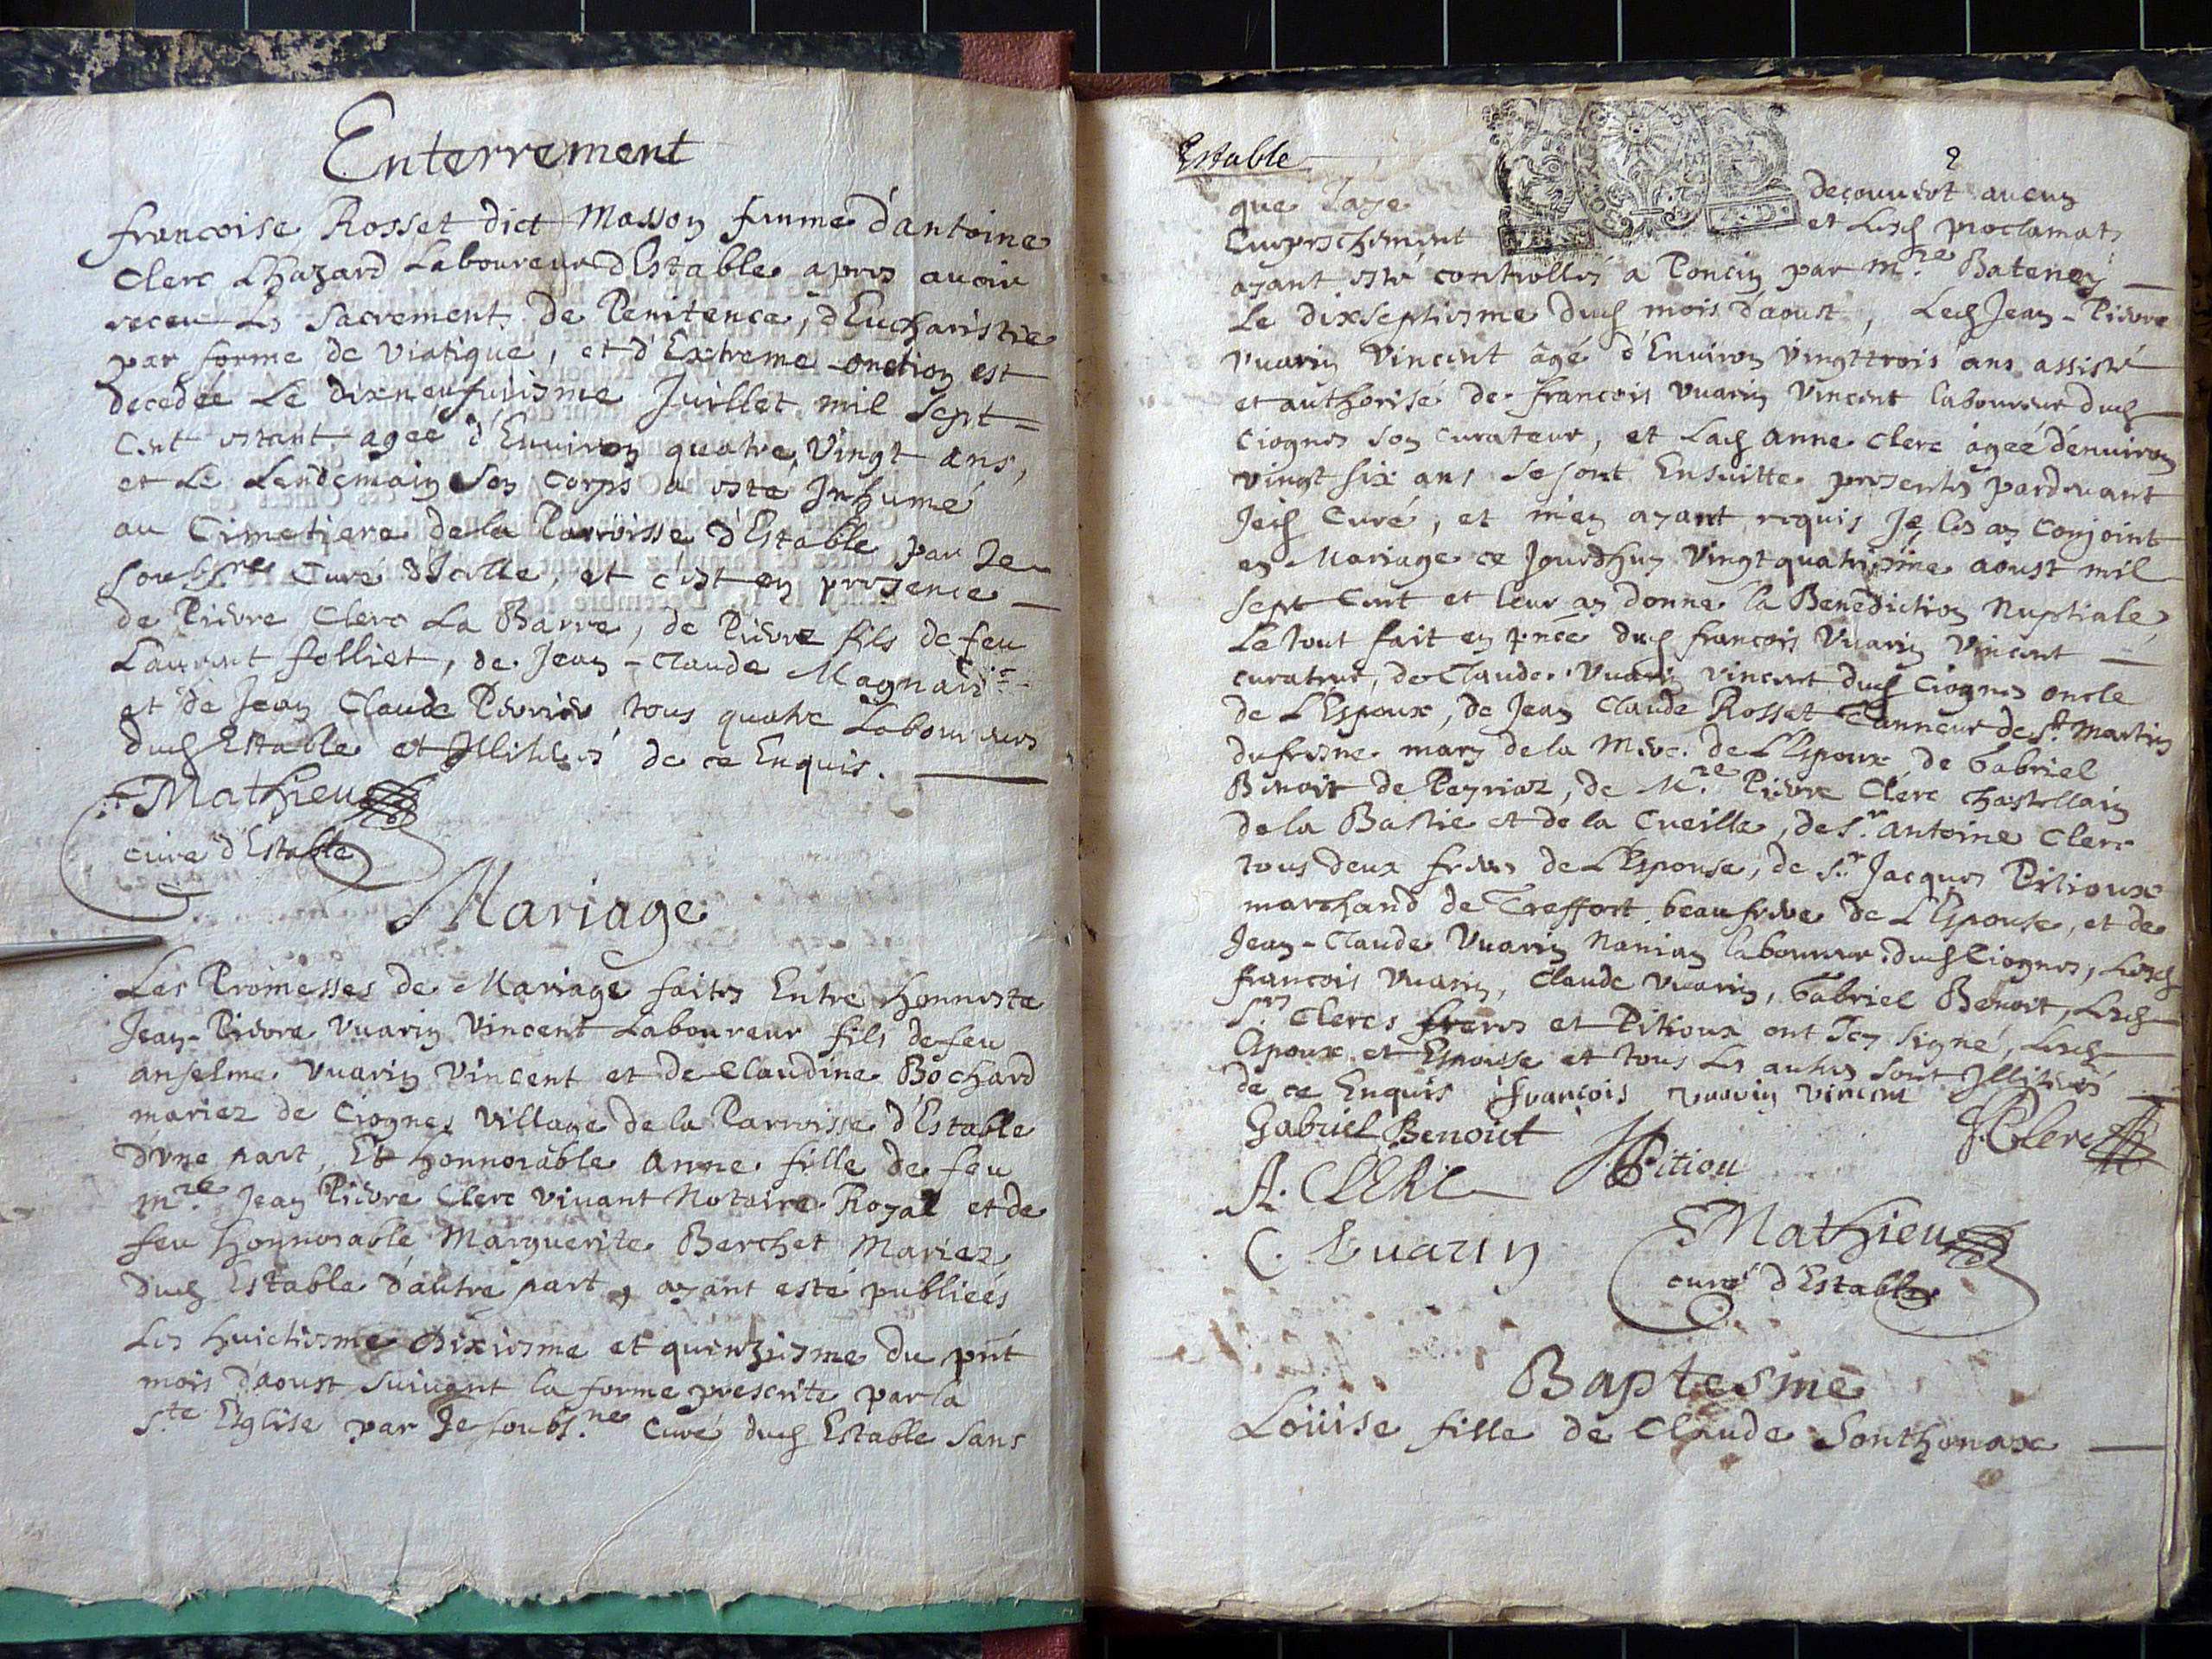 Enterrement
francoise Rosset dict Masson femme d'antoine
Clerc Lhazard Laboureur d'Estable apres auoir
receu Les Sacrements de Penitence, d'Eucharistie
par forme de viatique, et d'Extreme-onction est
decedée Le dixneufuiesme Juillet mil Sept=
Cent estant agée d'Enuiron quatre, Vingt ans,
et Le Lendemain Son Corps a esté Inhumé
au Cimetiere de la Parroisse d'Estable par Je
soubs.ne Curé d'Icelle, et c'est en presence —
de Pierre Clerc La Barre, de Pierre fils de feu
Laurent folliet, de Jean-Claude Magnair
et de Jean Claude Perrier tous quatre Laboureurs
dud Estable et Illiteres de ce Enquis. —
Mathieu
curé d'Estable
Mariage
Les Promesses de Mariage faites Entre honneste
Jean-Pierre Vuarin Vincent Laboureur fils de feu
anselme Vuarin Vincent et de Claudine Bochard
mariez de Ciognes village de la Parroisse d'Estable
d'vne part, Et honnorable Anne fille de feu
m.re Jean Pierre Clerc viuant Notaire Royal et de
feu honnorable Marguerite Berchet Mariez
dud Estable d'autre part, ayant esté publiées
Les huictiesme dixiesme et quinziesme du pnt
mois d'aoust suiuant la forme prescrite par la
S.te Eglise par Je soubs.ne Curé dud Estable Sans
Estable
2
que J'aye decouuert aucun
Empeschement et Lesd proclamats
ayant esté controllés a Poncin par m.re Bateney —
Le dixseptiesme dud mois d'aoust, Led Jean-Pierre
Vuarin Vincent âgé d'Enuiron vingttrois ans assisté
et authorisé de francois Vuarin Vincent laboureur dud
Ciognes son curateur, et Lad Anne Clerc âgée d'enuiron
vingt six ans se sont Ensuitte presentés pardeuant
Jed Curé, et m'en ayant requis Je les ay Conjoint
en Mariage ce Jourdhuy Vingtquatriesme aoust mil
sept Cent et leur ay donné la Benediction Nuptiale,
Le tout fait en pnce dud francois Vuarin Vincent —
curateur, de Claude Vuarin vincent dud Ciognes oncle
de L'Espoux, de Jean Claude Rosset Tanneur de St. Martin
dufresne mary de la Mere de L'Espoux de Gabriel
Benoit de Peyriaz, de M.re Pierre Clerc chastellain
de la Bastie et de la Cueille, de S.r Antoine Clerc
tous deux freres de L'Espouse, de S.r Jacques Pitioux
marchand de Treffort beaufrere de L'Espouse, et de
Jean-Claude Vuarin Nanian laboureur dud Ciognes, Lesd
francois Vuarin, Claude Vuarin, Gabriel Benoit, Lesd
S.rs Clercs freres et Pitioux ont Icy signé, Lesd
Espoux et Espouse et tous Les autres sont Illiterés
de ce Enquis françois vuarin vincent
Gabriel Benoict
P. Clerc
A. CLERC
J Pitiou
C. Vuarin
Mathieu
curé d'Estable
Baptesme
Loüise fille de Claude Sonthonax —